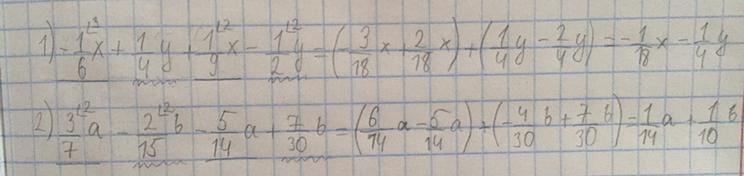 1) -1/6^{L3}x + 1/4 y + 1/9^{L2}x - 1/2^{L2}y = (-3/18 x + 2/18 x) + (1/4 y - 2/4 y) = -1/18 x - 1/4 y
2) 3/7^{L2}a - 2/15^{L2}b - 5/14 a + 7/30 b = (6/14 a - 5/14 a) + (-4/30 b + 7/30 b) = 1/14 a + 1/10 b